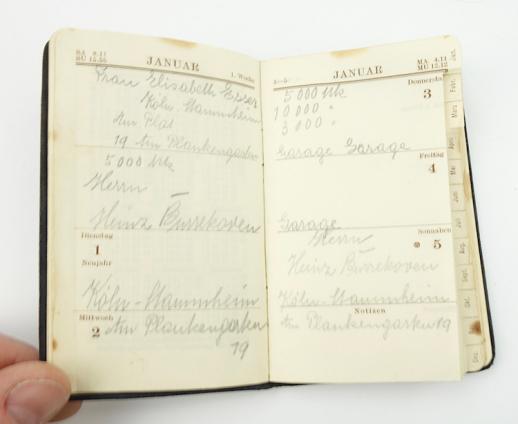 SA 8.11
SU 15.56
JANUAR
1. Woche
Frau Elisabeth Esser
Köln-Stammheim
Am Plat
19 Am Plankengarten
5000 Mk
Herrn
Heinz Burrekoven
Dienstag
1
Neujahr
Köln-Stammheim
Mittwoch
2
Am Plankengarten
19
JANUAR
MA 4.11
MU 12.12
Donnerstag
3
5000 Mk
10000 "
3000 "
Garage Garage
Freitag
4
Garage
Herrn
Sonnabend
5
Heinz Burrekoven
Köln-Stammheim
Notizen
Am Plankengarten 19
Jan.
Febr.
März
April
Mai
Jun.
Aug.
Sept.
Okt.
Dez.